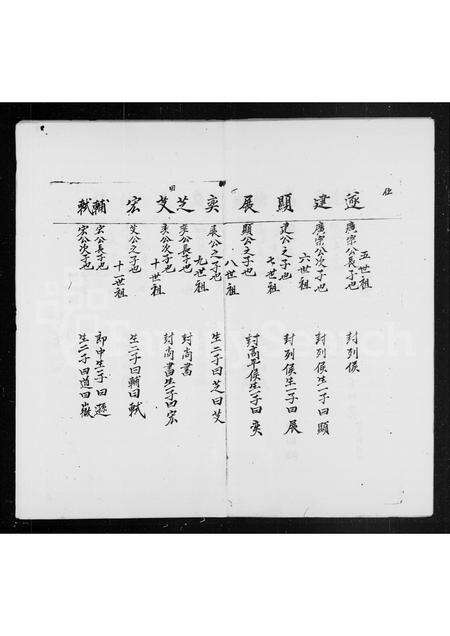 五世祖
遜
廣宗公長子也
封列侯
建
廣宗公次子也
封列侯生一子曰顯
六世祖
顯
建公之子也
封列侯生一子曰展
七世祖
展
顯公之子也
封高平侯生一子曰奕
八世祖
奕
展公之子也
生二子曰芝曰艾
九世祖
芝
奕公長子也
封尚書
艾
奕公次子也
封尚書生一子曰宏
十世祖
宏
艾公之子也
生二子曰輔曰軾
十一世祖
輔
宏公長子也
郎中生一子曰遜
軾
宏公次子也
生二子曰道曰嶽